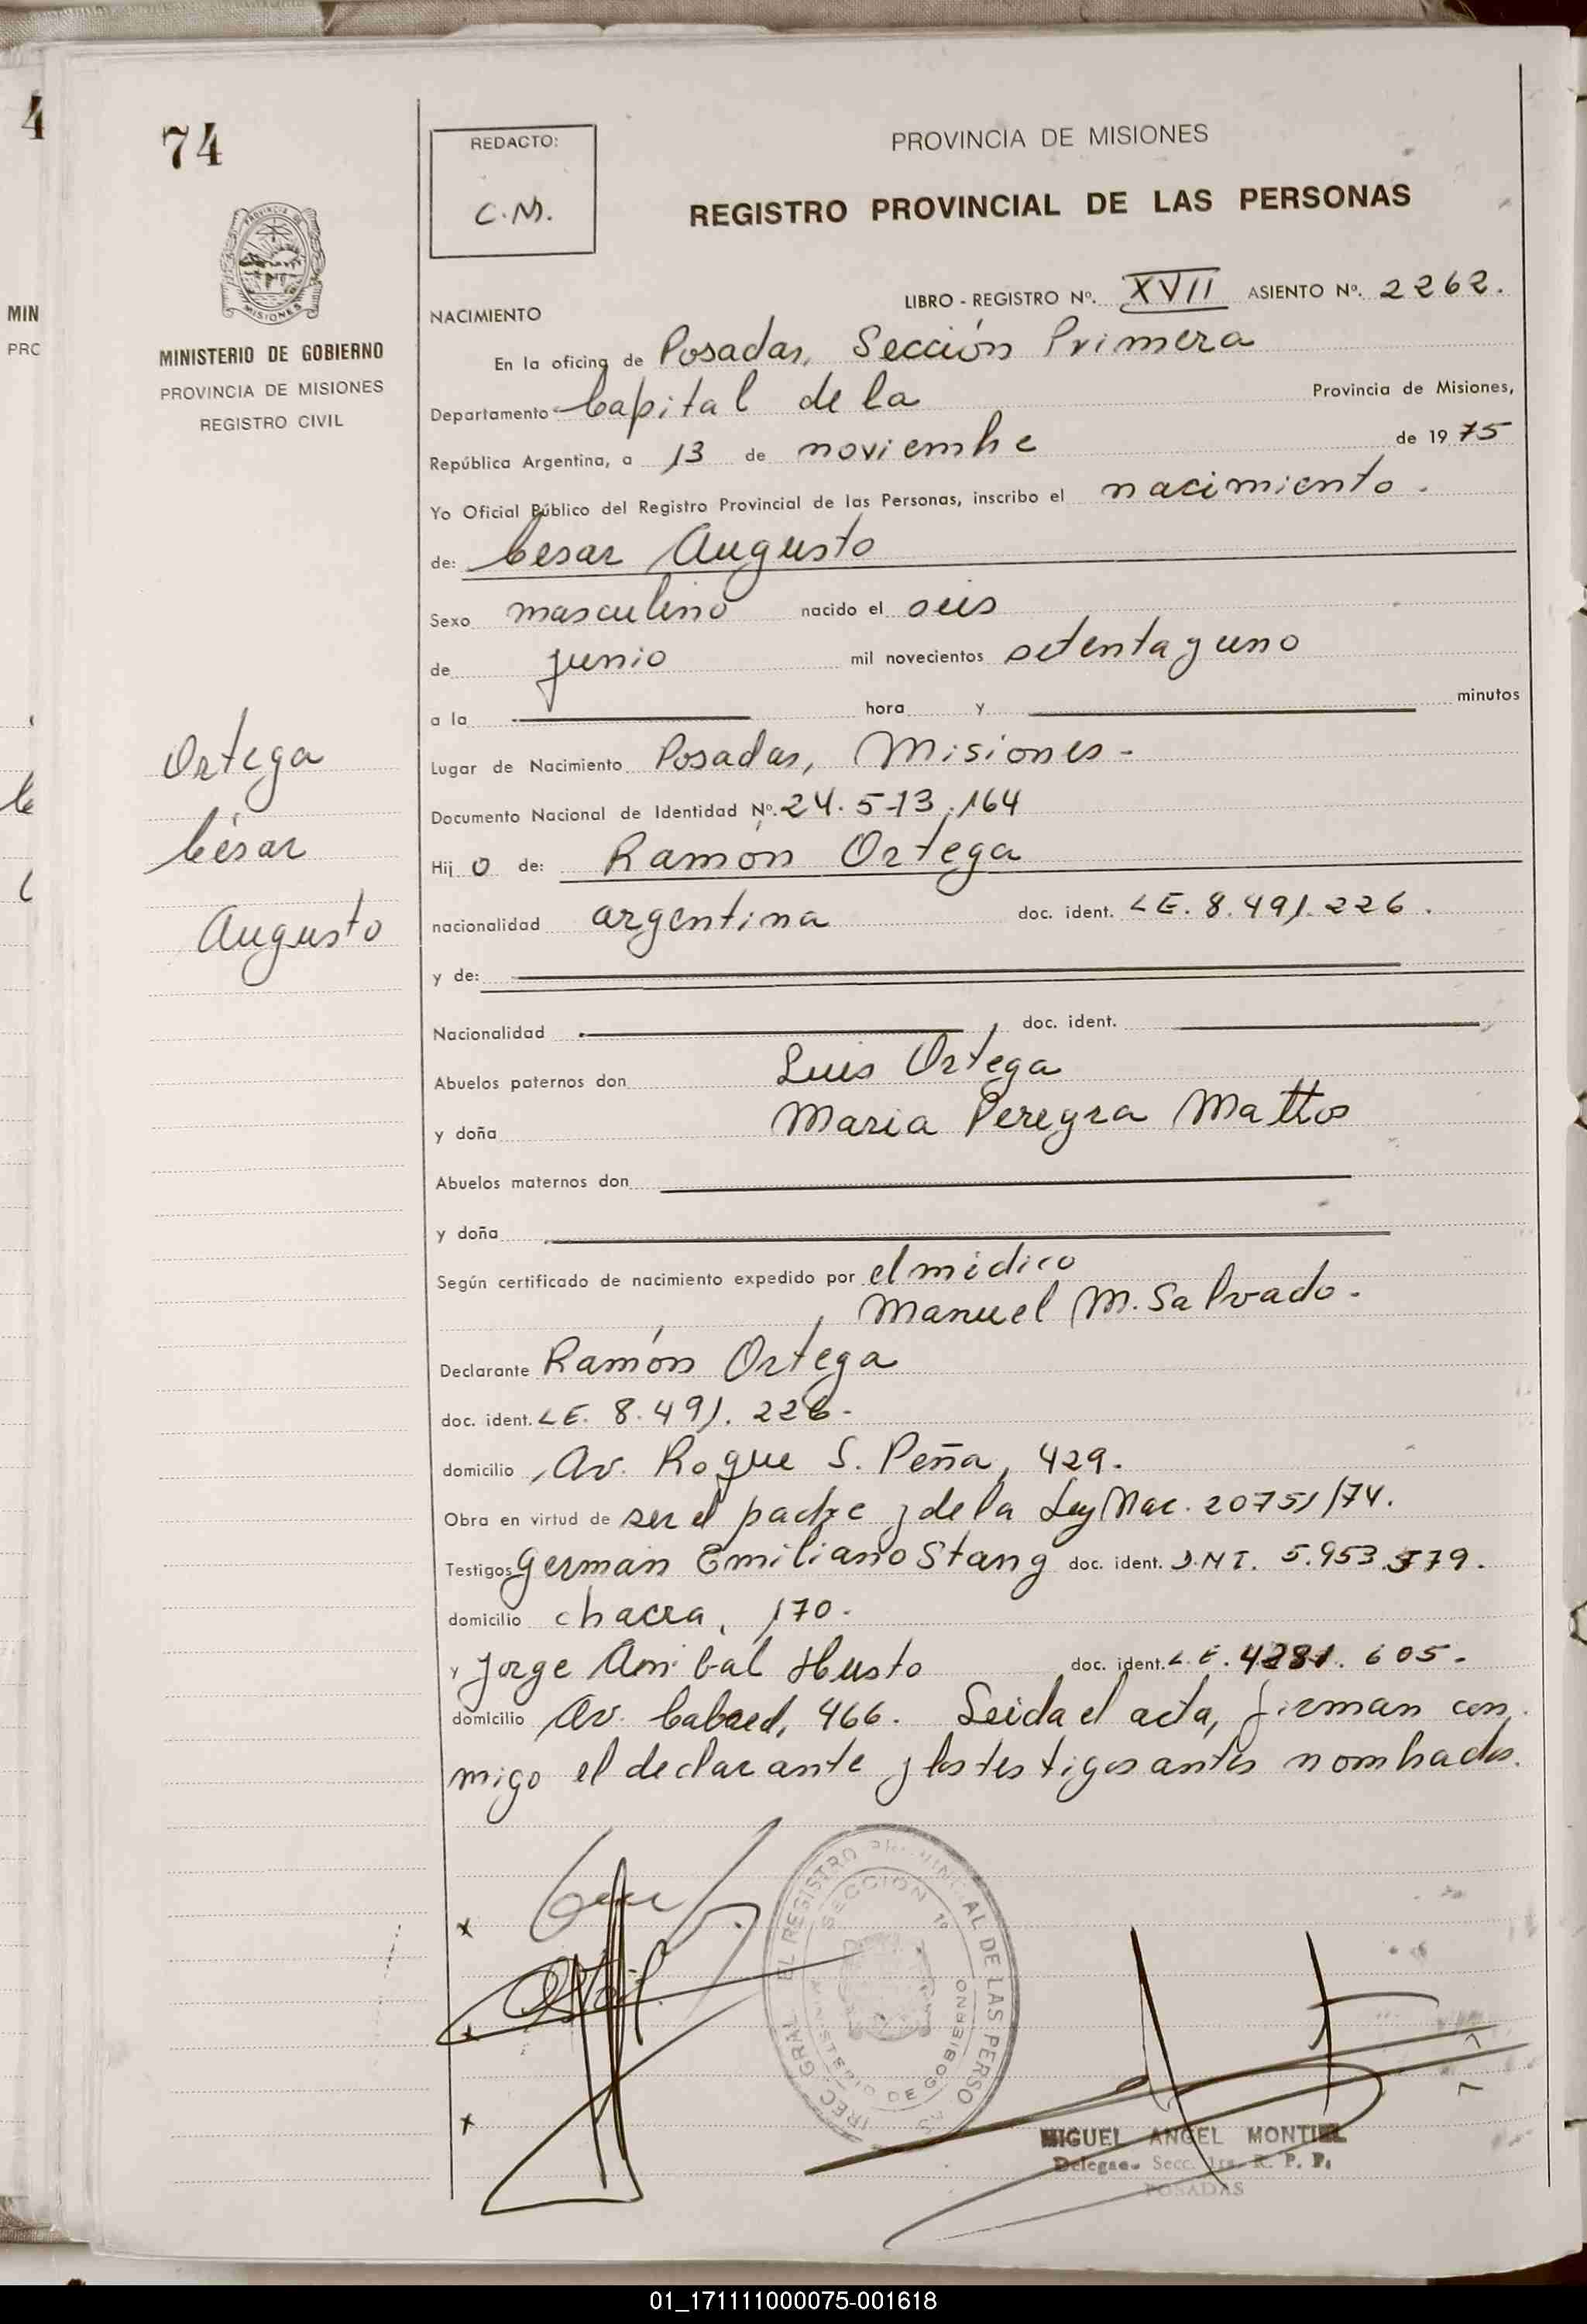 74
MINISTERIO DE GOBIERNO
PROVINCIA DE MISIONES
REGISTRO CIVIL
Ortega
César
Augusto
REDACTO:
C.M.
PROVINCIA DE MISIONES
REGISTRO PROVINCIAL DE LAS PERSONAS
LIBRO - REGISTRO Nº. XVII ASIENTO Nº. 2262.
NACIMIENTO
En la oficina de Posadas, Sección Primera
Departamento Capital de la Provincia de Misiones,
República Argentina, a 13 de noviembre de 1975
Yo Oficial Público del Registro Provincial de las Personas, inscribo el nacimiento.
de: César Augusto
Sexo masculino nacido el seis
de junio mil novecientos setenta y uno
a la hora y minutos
Lugar de Nacimiento Posadas, Misiones -
Documento Nacional de Identidad Nº. 24.573.164
Hij o de: Ramón Ortega
nacionalidad argentina doc. ident. LE. 8.491.226.
y de:
Nacionalidad doc. ident.
Abuelos paternos don Luis Ortega
y doña Maria Pereyra Mattos
Abuelos maternos don
y doña
Según certificado de nacimiento expedido por el médico
Manuel M. Salvado.
Declarante Ramón Ortega
doc. ident. LE. 8.491.226.
domicilio Av. Roque S. Peña, 429.
Obra en virtud de ser el padre y de la Ley Nac. 20751/74.
Testigos German Emiliano Stang doc. ident. D.N.I. 5.953.579.
domicilio chacra, 170.
y Jorge Anibal Husto doc. ident. L.E. 4281.605.
domicilio Av. Cabred, 466. Leida el acta, firman con
migo el declarante y los testigos antes nombrados.
DIREC. GRAL. DEL REGISTRO PROVINCIAL DE LAS PERSONAS
SECCION 1º
MINISTERIO DE GOBIERNO
MIGUEL ANGEL MONTIEL
Delegado Secc. 1ra. R. P. P.
POSADAS
01_171111000075-001618